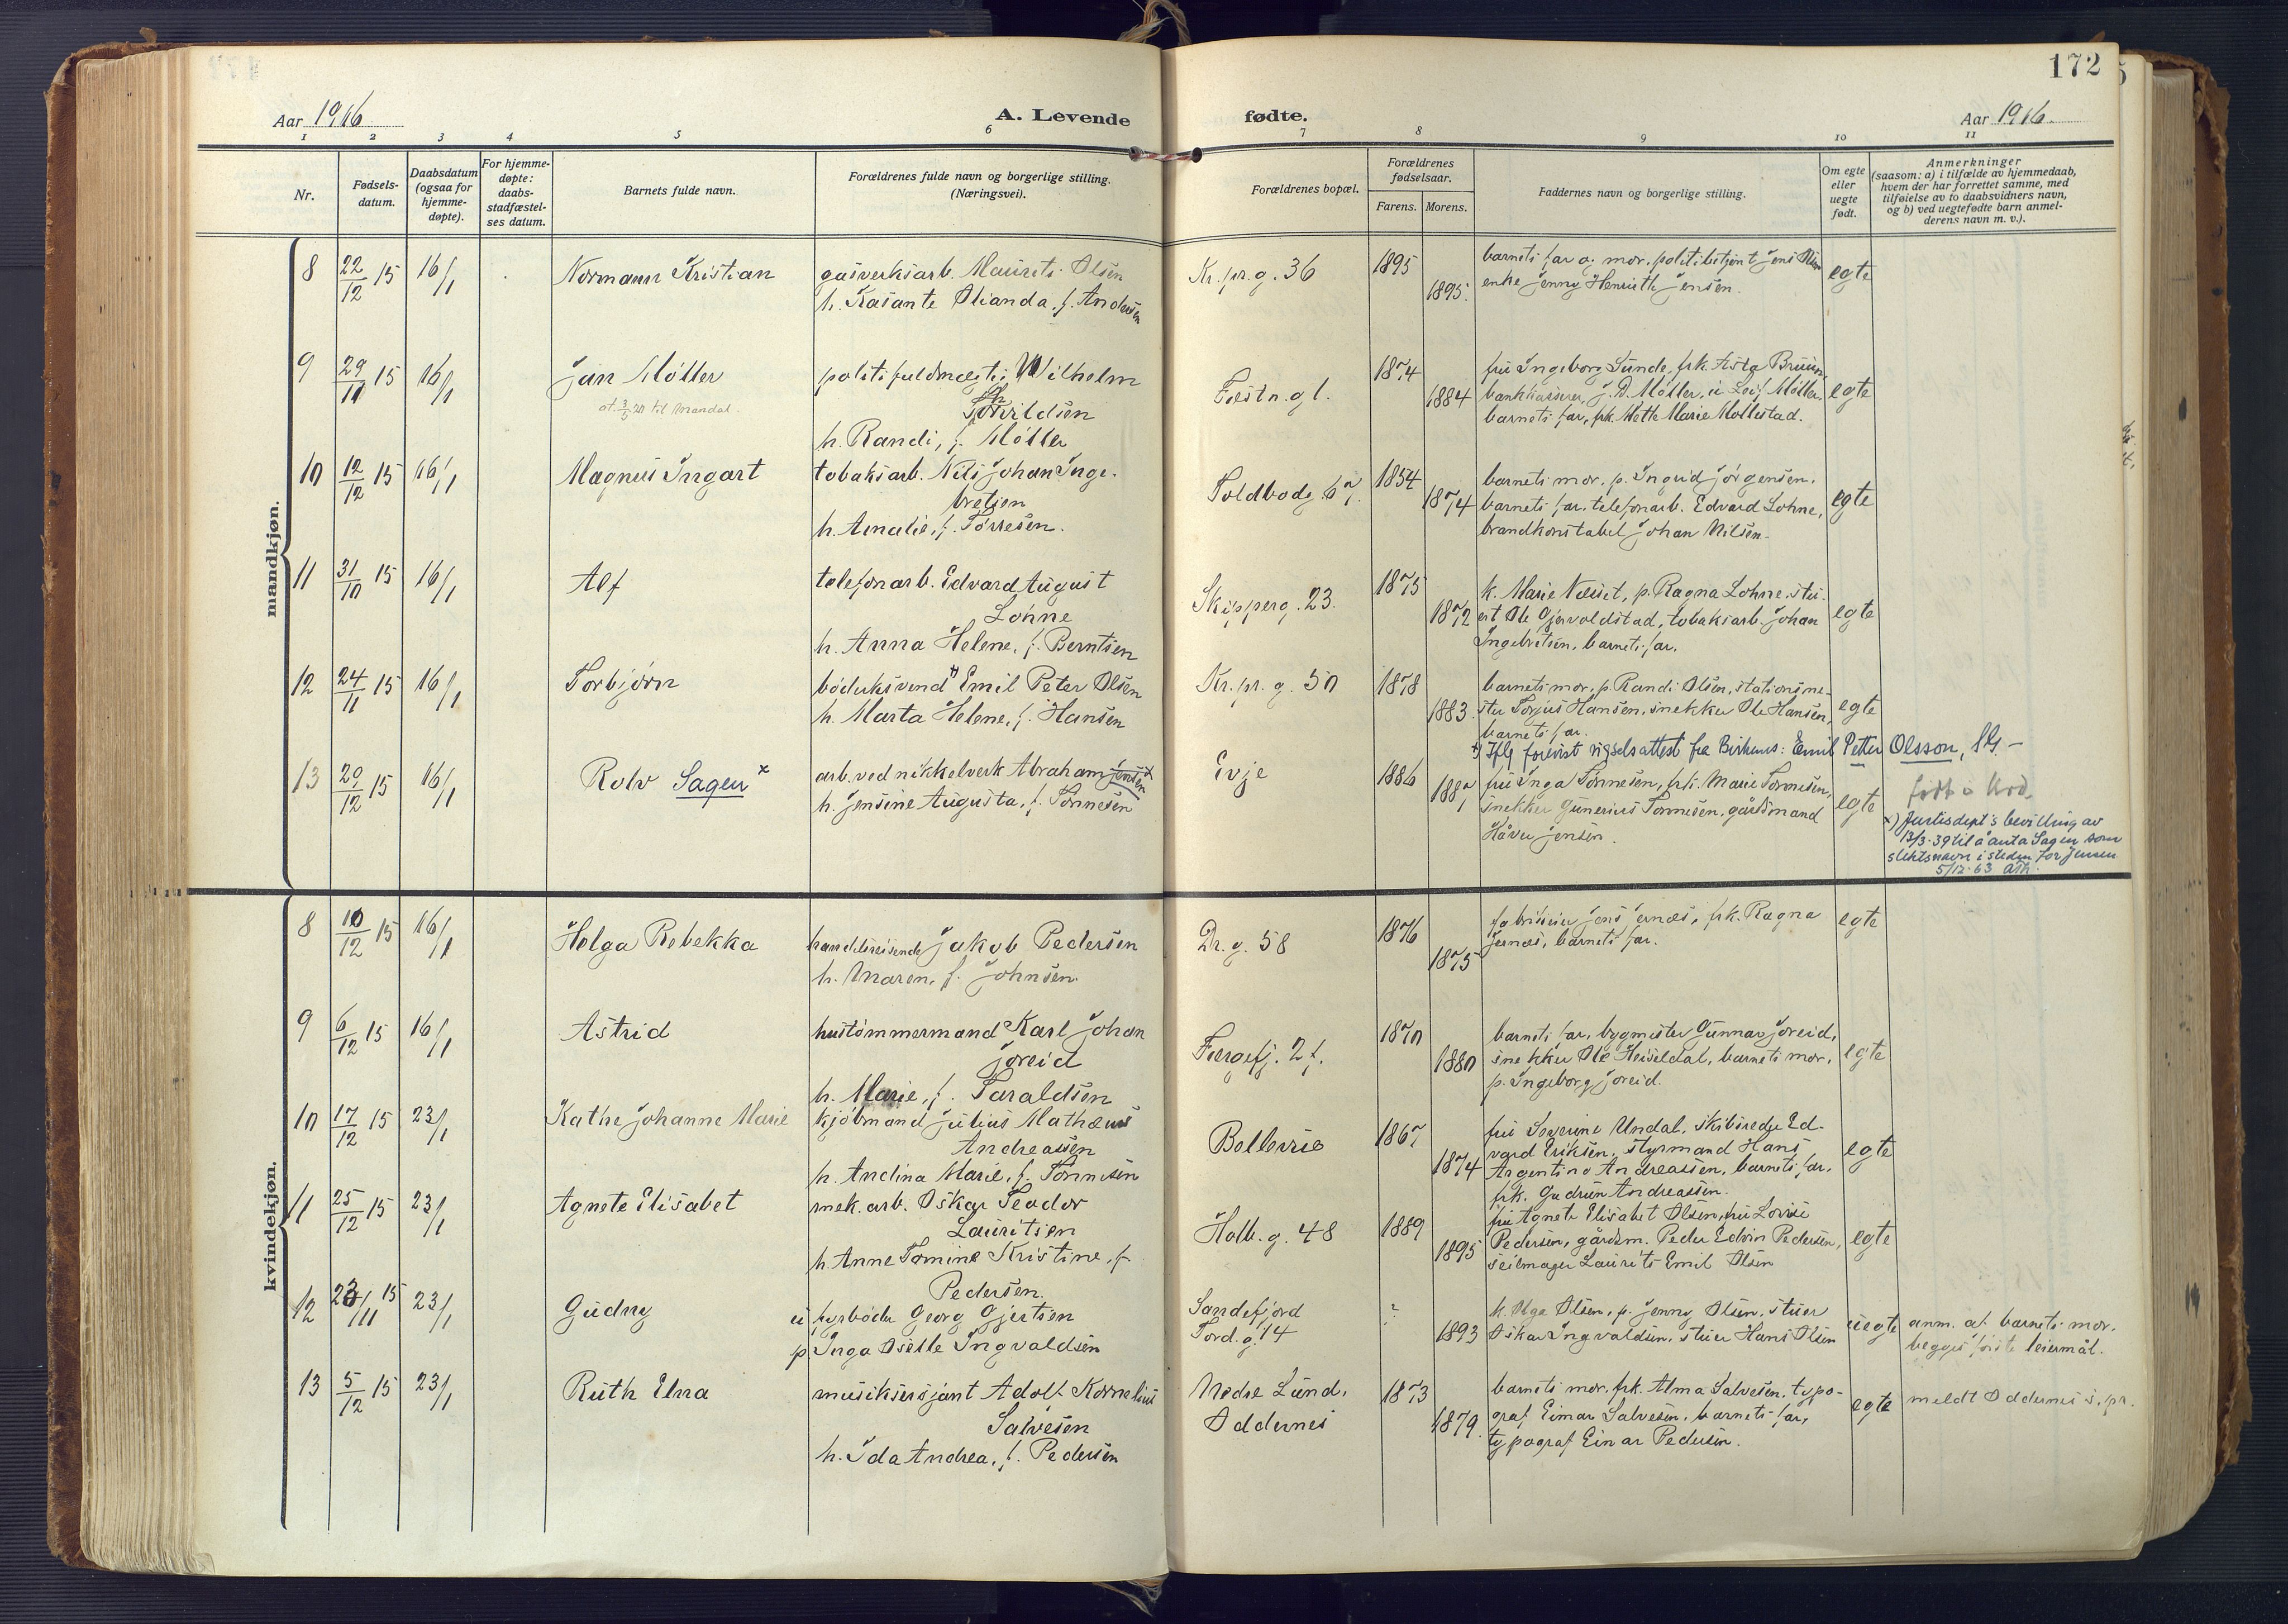 172
Aar 1916
A. Levende
fødte.
Aar 1916.
1 2 3 4 5 6 7 8 9 10 11
Nr.
Fødsels-
datum.
Daabsdatum
(ogsaa for
hjemme-
døpte).
For hjemme-
døpte:
daabs-
stadfæstel-
ses datum.
Barnets fulde navn.
Forældrenes fulde navn og borgerlige stilling.
(Næringsvei).
Forældrenes bopæl.
Forældrenes
fødselsaar.
Farens. Morens.
Faddernes navn og borgerlige stilling.
Om egte
eller
uegte
født.
Anmerkninger
(saasom: a) i tilfælde av hjemmedaab,
hvem der har forrettet samme, med
tilføielse av to daabsvidners navn,
og b) ved uegtefødte barn anmel-
derens navn m. v.).
mandkjøn.
8 22/12 15 16/1 Normann Kristian
gasverksarb. Maurits Olsen
h. Kasante Olianda, f. Andersen
Kr. pr. g. 36
1895
1895.
barnets far og mor, politibetjent Jens Olsen
enke Jenny Henriette Jensen.
egte
9 29/11 15 16/1 Jan Møller
at. 3/5 20 til Mandal.
politifuldmegtig Wilhelm
Thorvildsen
h. Randi, f. Møller
Festn. g 1.
1874
1884
fru Ingeborg Sunde, frk. Asta Bruun,
bankkasserer J. D. Møller, u Leif Møller,
barnets far, frk. Mette Marie Mollestad.
egte
10 12/12 15 16/1 Magnus Ingart
tobaksarb. Nils Johan Inge-
bretsen
h. Amalie, f. Tørresen.
Toldbodg. 67.
1854
1874
barnets mor, p. Ingrid Jørgensen,
barnets far, telefonarb. Edvard Lohne,
brandkonstabel Johan Nilsen.
egte
11 31/10 15 16/1 Alf
telefonarb. Edvard August
Lohne
h. Anna Helene, f. Berntsen
Skipperg. 23.
1875
1872
k. Marie Næset, p. Ragna Lohne, stu-
ert Ole Gjervoldstad, tobaksarb. Johan
Ingebretsen, barnets far.
egte
12 24/11 15 16/1 Torbjørn
bødkersvend Emil Peter Olsen
h. Marta Helene, f. Hansen
Kr. pr. g. 50
1878
1883.
barnets mor, p. Randi Olsen, stationsme-
ster Torjus Hansen, snekker Ole Hansen,
barnets far.
egte
Iflg forevist vigselsattest fra Birkenes: Emil Petter Olsson,
13 20/12 15 16/1 Rolv Sagen x
arb. ved nikkelverk Abraham Jensen x
h. Jensine Augusta, f. Tønnesen
Evje
1886
1887
fru Inga Tønnesen, frk. Marie Tønnesen,
snekker Gunerius Tønnesen, gårdmand
Håver Jensen.
egte
født i Krs.
x) Justisdept's bevilling av
13/3-39 til å anta Sagen som
slektsnavn i steden for Jensen
5/12-63
kvindekjøn.
8 10/12 15 16/1 Helga Rebekka
handelsreisende Jakob Pedersen
h. Maren, f. Johnsen.
Dr. g. 58
1876
1875
Jens Jernæs, frk. Ragna
Jernæs, barnets far.
egte
9 6/12 15 16/1 Astrid
hustømmermand Karl Johan
Joreid
h. Marie, f. Taraldsen
Færgefj. 2 f.
1870
1880
barnets far, bygmester Gunnar Joreid,
snekker Ole Heiseldal, barnets mor,
p. Ingeborg Joreid.
egte
10 17/12 15 23/1 Kathe Johanne Marie
kjøbmand Julius Mathæus
Andreassen
h. Andina Marie, f. Tønnesen
Bellevue
1867
1874
fru Severine Undal, skibsreder Ed-
vard Eriksen, styrmand Hans
Argentino Andreassen, barnets far,
frk. Gudrun Andreassen.
egte
11 25/12 15 23/1 Agnete Elisabet
mek. arb. Oskar Teodor
Lauritsen
h. Anne Tomine Kristine, f.
Pedersen.
Holb. g. 48
1889
1895
fru Agnete Elisabet Olsen, fru Lovise
Pedersen, gårdm. Peder Edvin Pedersen,
seilmager Laurits Emil Olsen
egte
12 23/11 15 23/1 Gudny
u fyrbøder Georg Gjertsen
p. Inga Osille Ingvaldsen
Sandefjord
Tord. g. 14
?
1893
k. Olga Olsen, p. Jenny Olsen, stuer
Oskar Ingvaldsen, stuer Hans Olsen
uegte
anm. af barnets mor.
begges første leiermål.
13 5/12 15 23/1 Ruth Elna
musiksersjant Adolf Kornelius
Salvesen
h. Ida Andrea, f. Pedersen
Nedre Lund,
Oddernes
1873
1879.
barnets mor, frk. Alma Salvesen, typo-
graf Eimar Salvesen, barnets far,
typograf Einar Pedersen.
egte
meldt Oddernes s. pr.